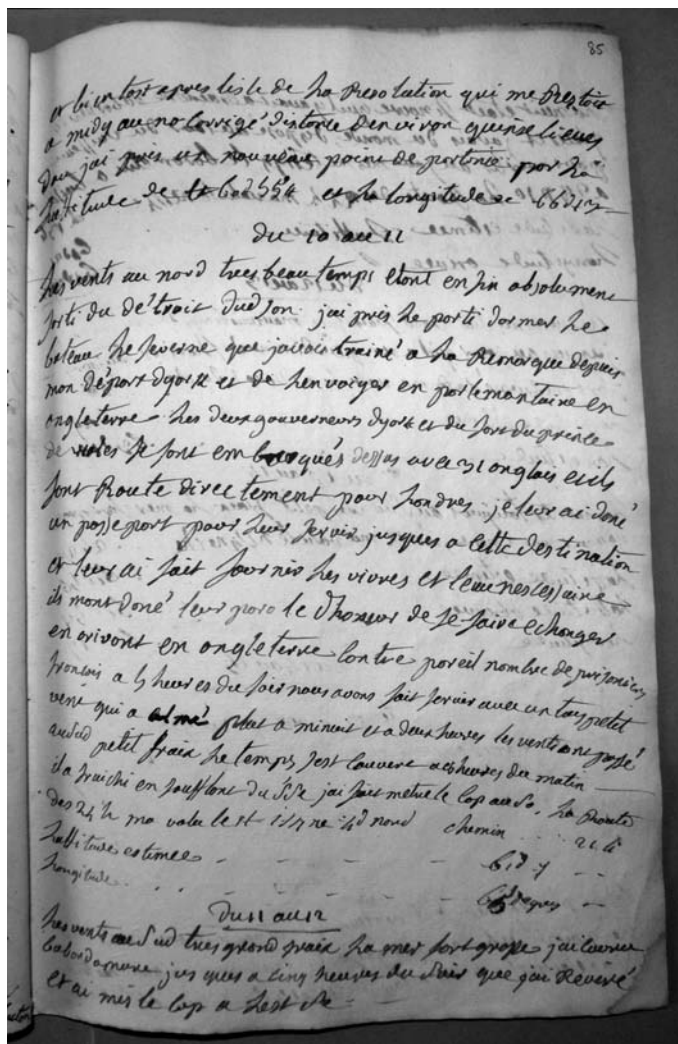 85
et bientost apres lisle de ha Resolution qui me Restoit
a midy au no Corrigé distance denviron quinse lieues
dou jai pris un nouveau point de partence par ha
hatitude de et ha longitude de 66d
du 10 au 11
hes vents au nord tres beau temps etant en fin absolument
sorti du détrait dudson jai pris he parti darmer he
bateau he severne que javois trainé a ha Remorque depuis
mon départ dyork et de henvoiyer en parlemantaire en
angleterre hes deux gouverneurs dyork et du fort du prince
de se sont embarqués dessus avec 31 anglais et ils
font Route directement pour hondres je leur ai doné
un passeport pour leur servir jusques a cette destination
et leur ai fait fournir hes vivres et leau nessesaire
ils mont doné leur parole dhoneur de se faire echanger
en arivant en angleterre contre pareil nombre de prisoniers
fransais a 5 heures du soir nous avons fait servir avec un tres petit
vent qui a calmé plat a minuit et a deux heures les vents ont passé
au sud petit fraix he temps sest couvert a 6 heures du matin
il a fraichi en soufflant du SSe jai fait metre le cap au So. ha Route
des 24 h ma valu le ne nord chemin
hattitude estimee
hongitude
du 11 au 12
hes vents au Sud tres grand fraix ha mer fort grosse jai couru
babord amure jusques a cinq heures du soir que jai Reviré
et ai mis le cap a hest Se